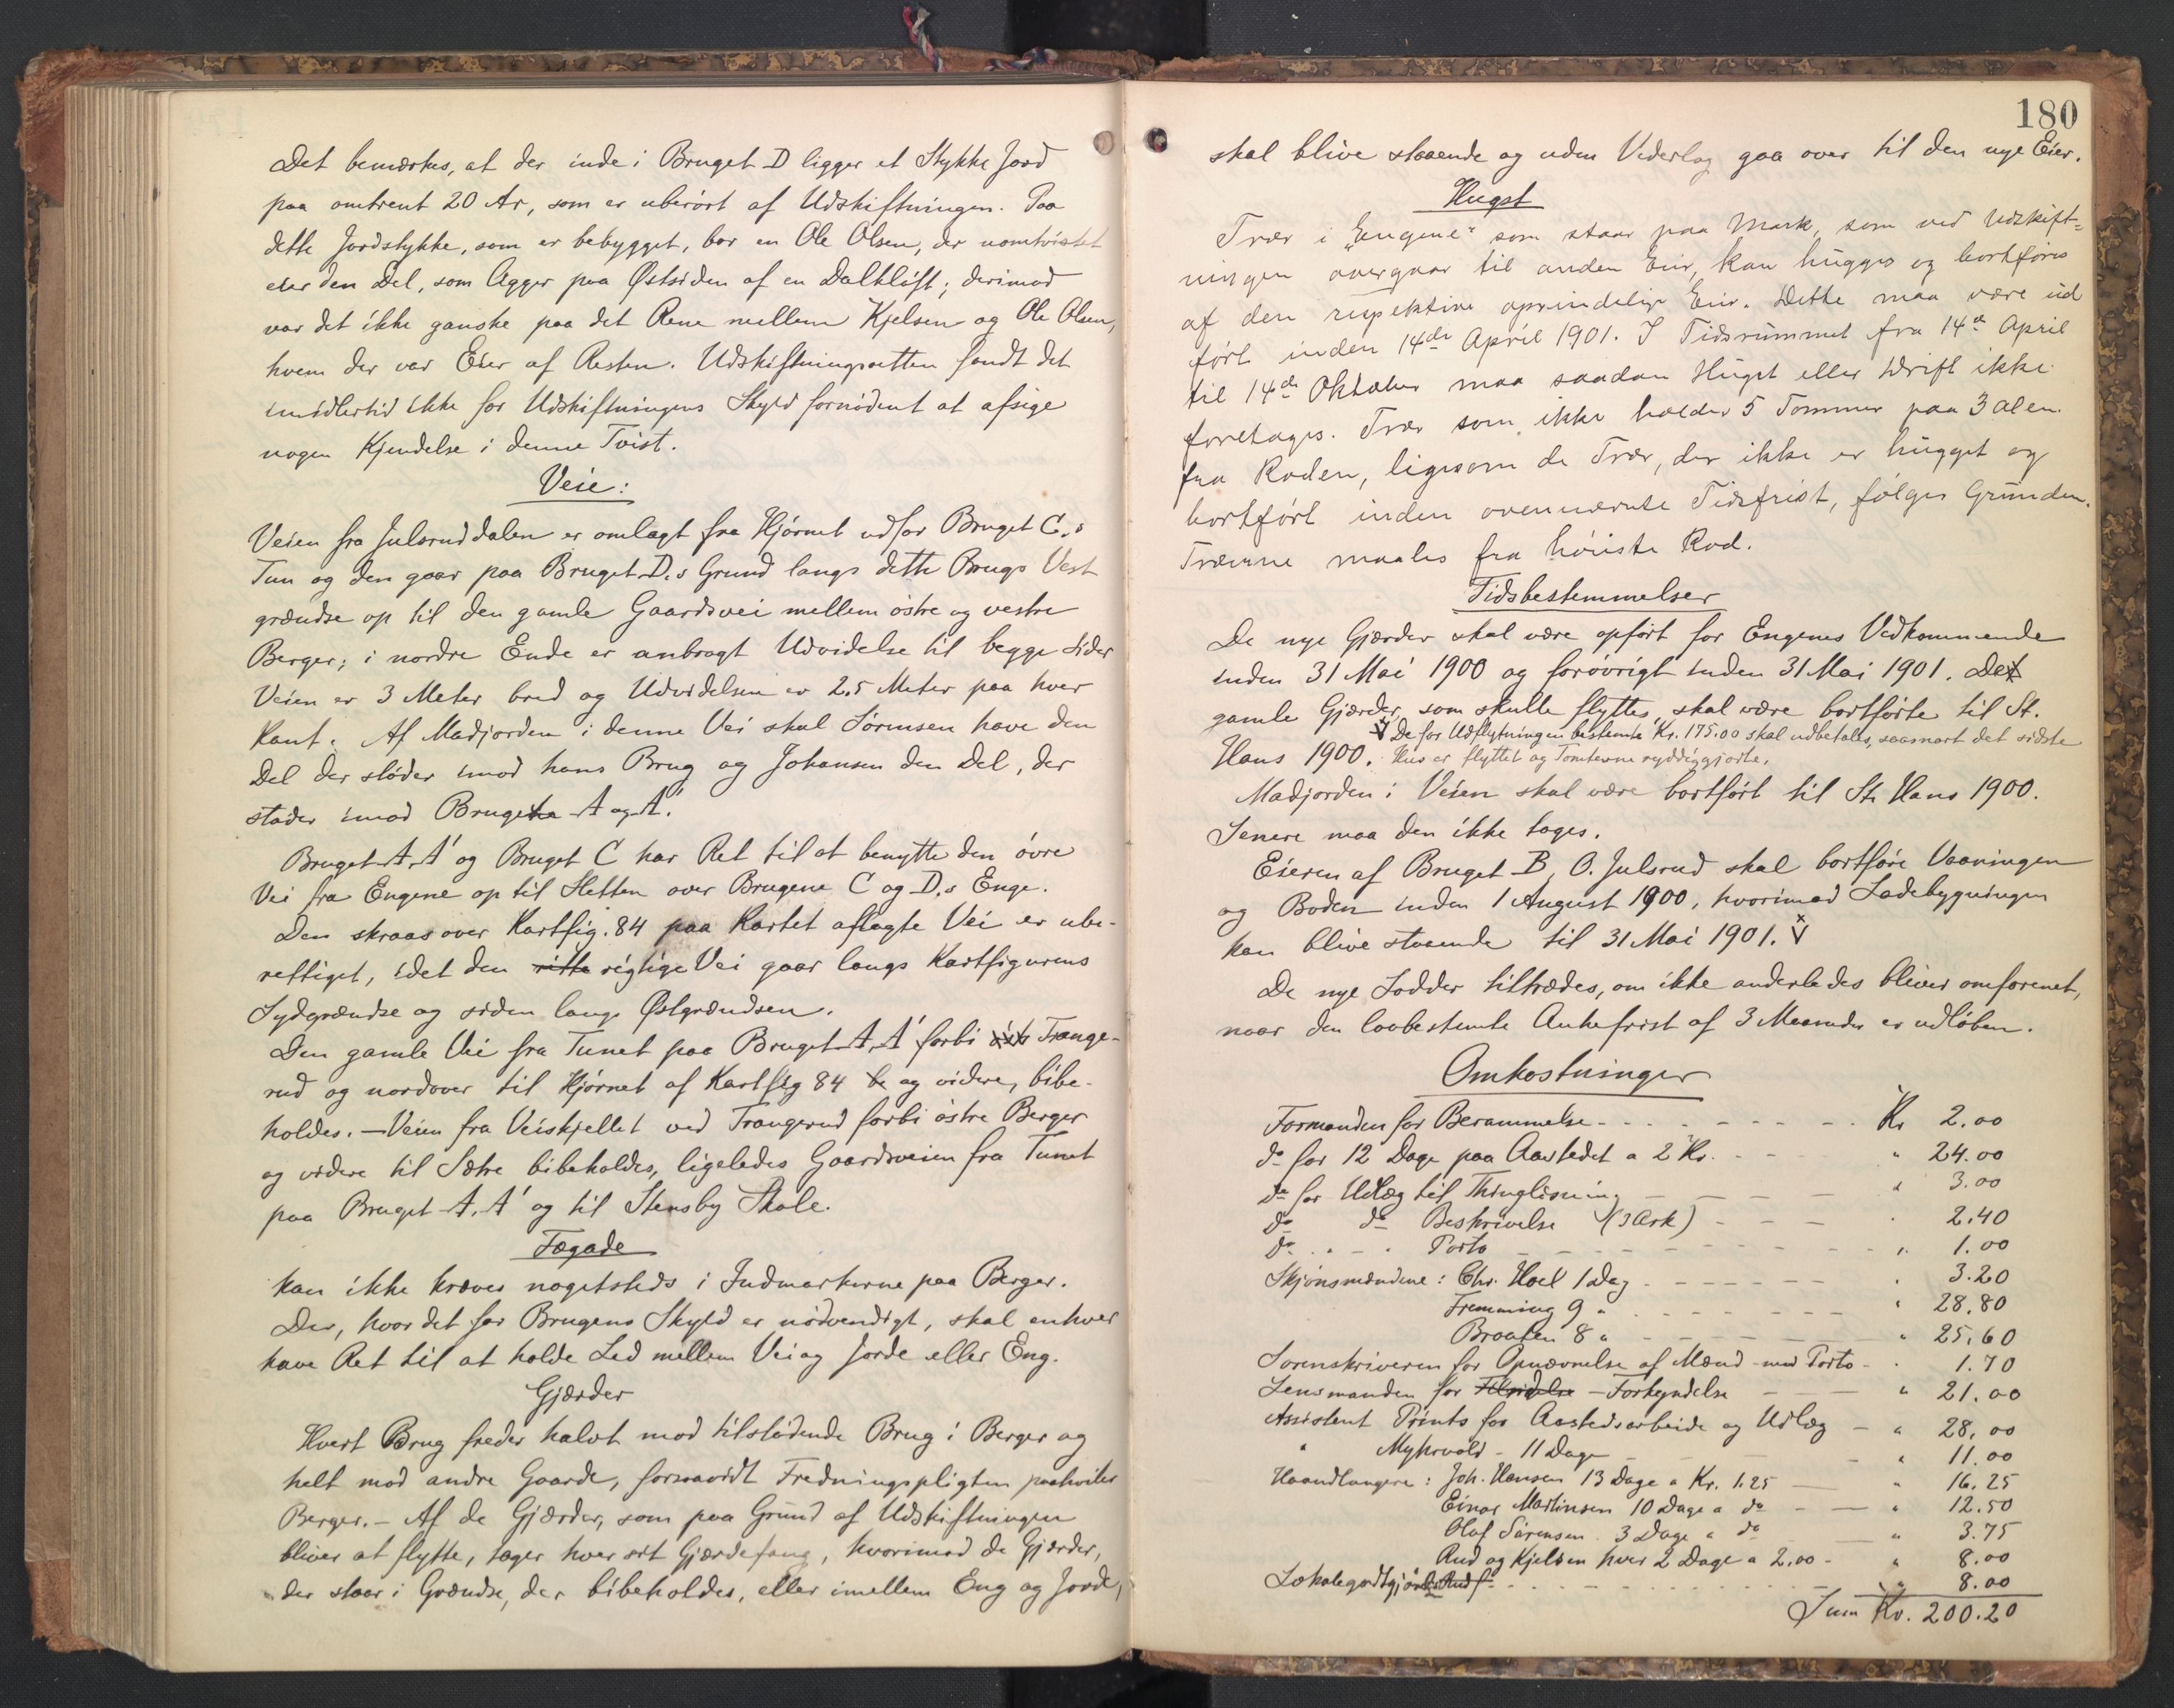 Det bemærkes, at der inde i Bruget D ligger et Stykke Jord
paa omtrent 20 Ar, som er uberørt af Udskiftningen. Paa
dette Jordstykke, som er bebygget, bor en Ole Olsen, der uomtvistet
eier den Del, som ligger paa Østsiden af en Dalkløft; derimod
var det ikke ganske paa det Rene mellem Kjelsen og Ole Olsen,
hvem der var Eier af Resten. Udskiftningsretten fandt det
imidlertid ikke for Udskiftningens Skyld fornødent at afsige
nogen Kjendelse i denne Tvist.
Veie:
Veien fra Julsruddalen er omlagt fra Hjørnet udfor Bruget C.s
Tun og den gaar paa Bruget D.s Grund langs dette Brugs Vest
grændse op til den gamle Gaardsvei mellem østre og vestre
Berger; i nordre Ende er anbragt Udvidelse til begge Sider
Veien er 3 Meter bred og Udvidelsen er 2.5 Meter paa hver
Kant. Af Madjorden i denne Vei skal Sørensen have den
Del der støder imod hans Brug og Johansen den Del, der
støder imod Brugets A og A'.
Bruget A, A' og Bruget C har Ret til at benytte den øvre
Vei fra Engene op til Sletten over Brugene C og D.s Enge.
Den skraas over Kartfig. 84 paa Kartet aflagte Vei er ube-
rettiget, idet den rette rigtige Vei gaar langs Kartfigurens
Sydgrændse og siden langs Østgrændsen.
Den gamle Vei fra Tunet paa Bruget A, A' forbi Trange-
rud og nordover til Hjørnet af Kartfig 84 be og videre, bibe-
holdes. – Veien fra Veiskjellet ved Trangerud forbi østre Berger
og videre til Sætre bibeholdes, ligeledes Gaardsveien fra Tunet
paa Bruget A, A' og til Stensby Skole.
Fægade
kan ikke kræves nogetsteds i Indmarkerne paa Berger.
Der, hvor det for Brugens Skyld er nødvendigt, skal enhver
have Ret til at holde Led mellem Vei og Jorde eller Eng.
Gjærder
Hvert Brug freder halvt mod tilstødende Brug i Berger og
helt mod andre Gaarde, forsaavidt Fredningspligten paahviler
Berger. – Af de Gjærder, som paa Grund af Udskiftningen
bliver at flytte, tager hver sit Gjærdefang, hvorimod de Gjærder,
der staar i Grændse, der bibeholdes, eller imellem Eng og Jorde,
180
skal blive staaende og uden Vederlag gaa over til den nye Eier.
Hugst
Trær i "Engene" som staar paa Mark, som ved Udskift=
ningen overgaar til anden Eier, kan hugges og bortføres
af den respektive oprindelige Eier. Dette maa være ud
ført inden 14de April 1901. I Tidsrummet fra 14de April
til 14de Oktober maa saadan Hugst eller Drift ikke
foretages. Trær som ikke holder 5 Tommer paa 3 alen
fra Roden, ligesom de Trær, der ikke er hugget og
bortført inden ovennævnte Tidsfrist, følger Grunden.
Træerne maales fra høieste Rod.
Tidsbestemmelser
De nye Gjærder skal være opført for Engenes Vedkommende
inden 31 Mai 1900 og forøvrigt inden 31 Mai 1901. Det
gamle Gjærder, som skulle flyttes, skal være bortførte til St.
De for Udflytningen bestemte Kr. 175.00 skal udbetales, saasnart det sidste
Hans 1900. Hus er flyttet og Tomterne ryddiggjorte.
Madjorden i Veien skal være bortført til St. Hans 1900.
Senere maa den ikke tages.
Eieren af Bruget B, O. Julsrud skal bortføre Vaaningen
og Boden inden 1 August 1900, hvorimod Ladebygningen
kan blive staaende til 31 Mai 1901.
De nye Lodder tiltrædes, om ikke anderledes bliver omforenet,
naar den lovbestemte Ankefrist af 3 Maaneder er udløben.
Omkostninger
Formanden for Berammelse - - - Kr 2.00
do for 12 Dage paa Aastedet a 2 Kr. - - " 24.00
do for Udlæg til Thinglæsning - - - " 3.00
do do Beskrivelse (3 Ark) - - - " 2.40
do " - " Porto - - - " 1.00
Skjønsmændene: Chr. Hoel 1 Dag - - - " 3.20
Fremming 9 " - - - " 28.80
Braaten 8 " - - - " 25.60
Sorenskriveren for Opnævnelse af Mænd med Porto - " 1.70
Lensmanden for Forkyndelse - - - " 21.00
Assistent Prints for Aastedsarbeide og Udlæg - " 28.00
" Myhrvold - 11 Dage - - - " 11.00
Haandlangere: Joh. Hansen 13 Dage a Kr. 1.25 - " 16.25
Einar Martinsen 10 Dage a do - - " 12.50
Olaf Sørensen 3 Dage a do - - " 3.75
Rud og Kjelsen hver 2 Dage a 2.00 - " 8.00
Lokalegodtgjørelse - - - " 8.00
Sum Kr. 200.20